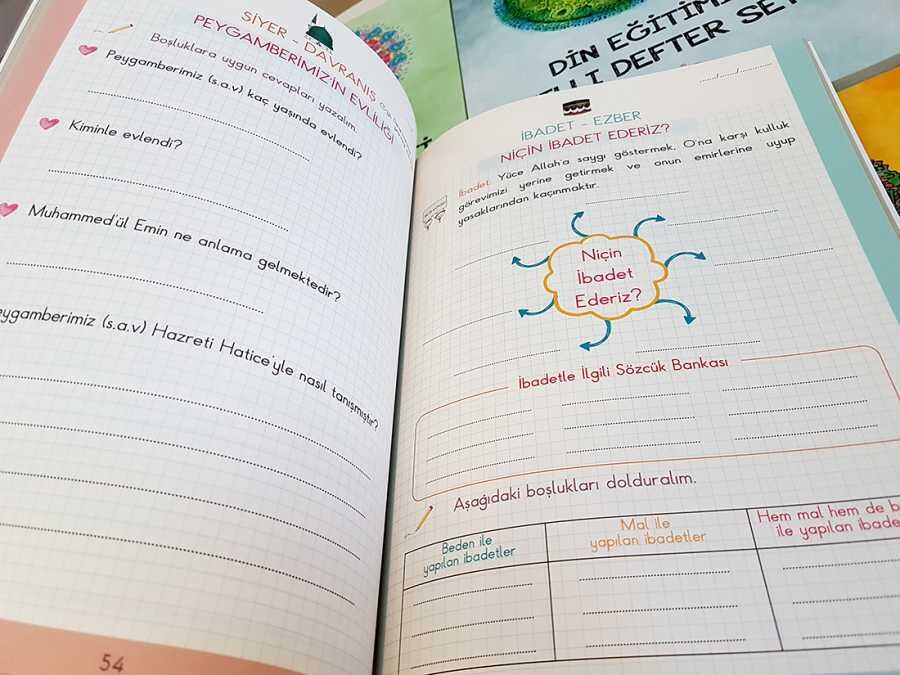 SİYER - DAVRANIŞ
PEYGAMBERİMİZ'İN EVLİLİĞİ
Boşluklara uygun cevapları yazalım.
Peygamberimiz (s.a.v) kaç yaşında evlendi?
Kiminle evlendi?
Muhammed'ül Emin ne anlama gelmektedir?
eygamberimiz (s.a.v) Hazreti Hatice'yle nasıl tanışmıştır?
54
DİN EĞİTİMİ
DEFTER SE
İBADET - EZBER
NİÇİN İBADET EDERİZ?
İbadet: Yüce Allah'a saygı göstermek, O'na karşı kulluk
görevimizi yerine getirmek ve onun emirlerine uyup
yasaklarından kaçınmaktır.
Niçin
İbadet
Ederiz?
İbadetle İlgili Sözcük Bankası
Aşağıdaki boşlukları dolduralım.
Beden ile
yapılan ibadetler
Mal ile
yapılan ibadetler
Hem mal hem de b
ile yapılan ibade